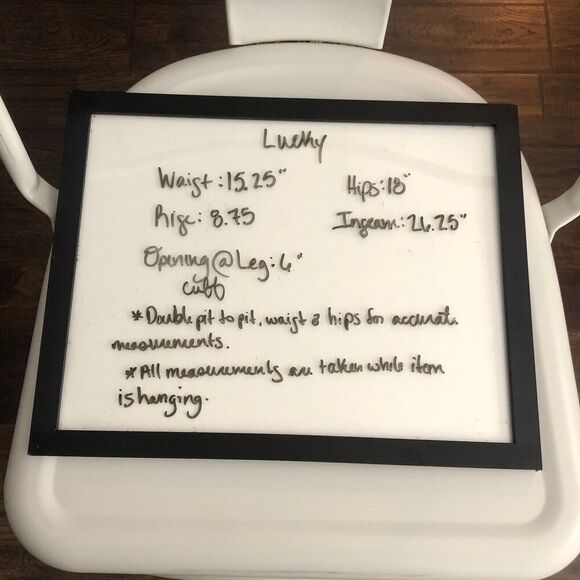 Lucky
Waist: 15.25" Hips: 18"
Rise: 8.75 Inseam: 26.25"
Opening @ Leg: 6"
cuff
* Double pit to pit, waist & hips for accurate
measurements.
* All measurements are taken while item
is hanging.